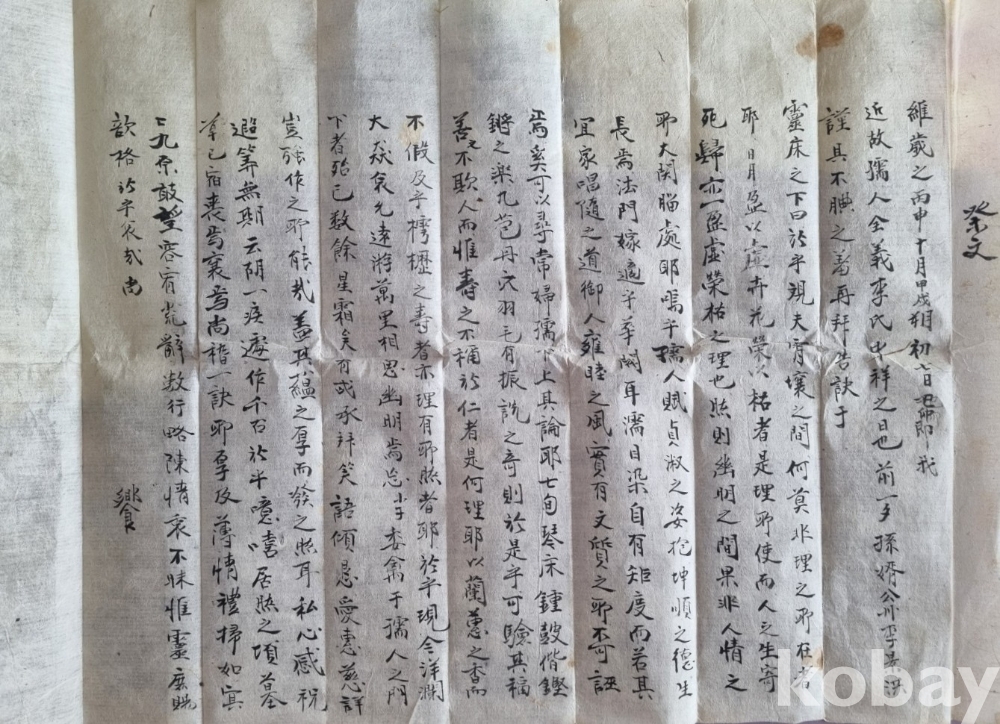 祭文
維歲之丙申十月甲戌朔初六日己卯卽我
近故孺人全義李氏中祥之日也前一夕孫婿公州李
謹具不腆之羞再拜告訣于
靈床之下曰於乎現夫宵壤之間何莫非理之耶在者
耶日月盈以虛卉花榮以枯者是理耶使而人之生寄
死歸亦一盈虛榮枯之理也然則幽明之間果非人情之
耶大関腦處耶嗚乎孺人賦貞淑之姿抱坤順之德生
長焉法門嫁適乎華閥耳濡目染自有矩度而若其
宜家唱隨之道御人雍睦之風實有文質之耶不可誣
焉奚可以尋常婦孺下上其論耶七旬琴床鍾鼓偕鏗
鏘之樂九苞丹穴羽毛有振說之奇則於是乎可驗其福
善之不欺人而惟壽之不稱於仁者是何理耶以蘭蕙之香而
不假及乎樗櫪之壽者亦理有耶然者耶於乎現今洋瀾
大焱哀允遠游萬里相思幽明焉忘小子委禽于孺人之門
下者殆已數餘星霜矣有或承拜笑語傾悬愛惠慈詳
豈強作之耶能哉盖其蘊之厚而發之然耳私心感祝
遐筭無期云胡一疾遽作千古於乎噫嘻居然之頃墓
草已宿喪焉裏焉尚稽一訣耶厚及薄情禮掃如冥
冥九原敢望容宥荒辭數行略陳情哀不昧惟靈庶
歆格於乎哀哉尚
饗
kobay